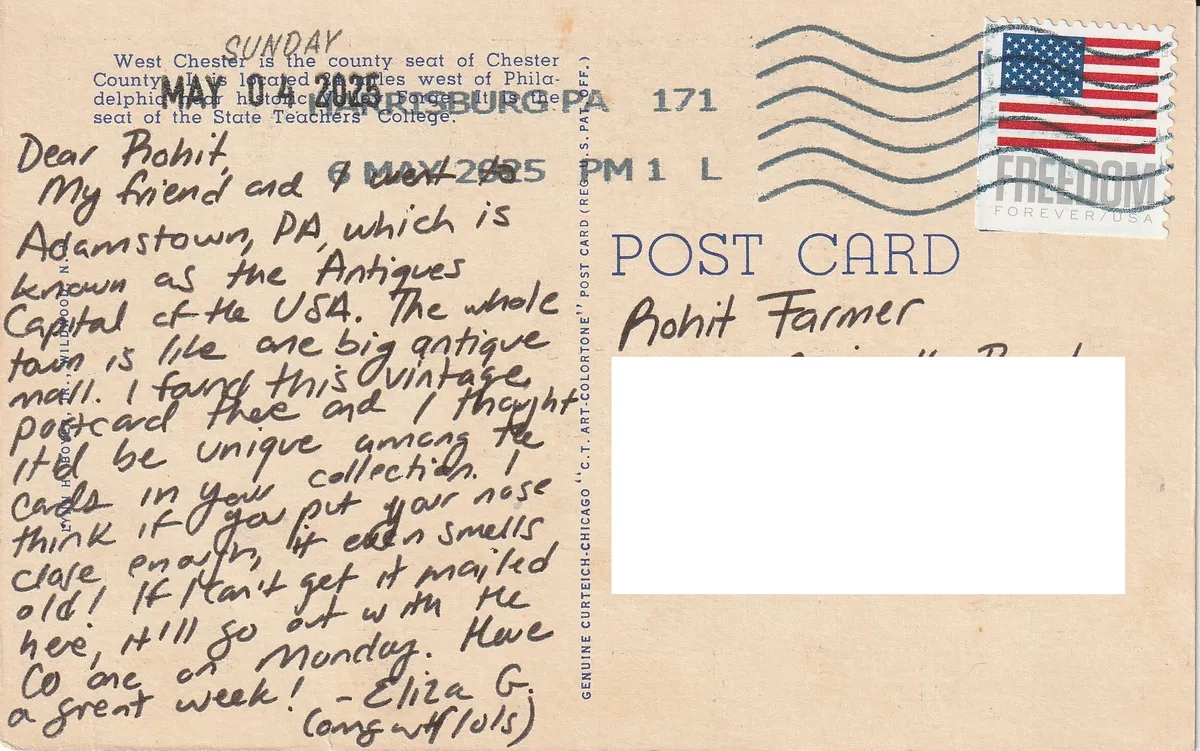 SUNDAY
West Chester is the county seat of Chester
County. It is located miles west of Phila-
delphia near historic Valley Forge. It is the
seat of the State Teachers' College.
MAY 04 2025
HARRISBURG PA 171
6 MAY 2025 PM 1 L
FREEDOM
FOREVER/USA
Dear Rohit,
My friend and I went to
Adamstown, PA, which is
known as the Antiques
Capital of the USA. The whole
town is like one big antique
mall. I found this vintage
postcard there and I thought
it'd be unique among the
cards in your collection. I
think if you put your nose
close enough, it even smells
old! If I can't get it mailed
here, it'll go out with the
CO one on Monday. Have
a great week! - Eliza G.
(omgwtflols)
GENUINE CURTEICH-CHICAGO "C.T. ART-COLORTONE" POST CARD (REG. U.S. PAT. OFF.)
POST CARD
Rohit Farmer